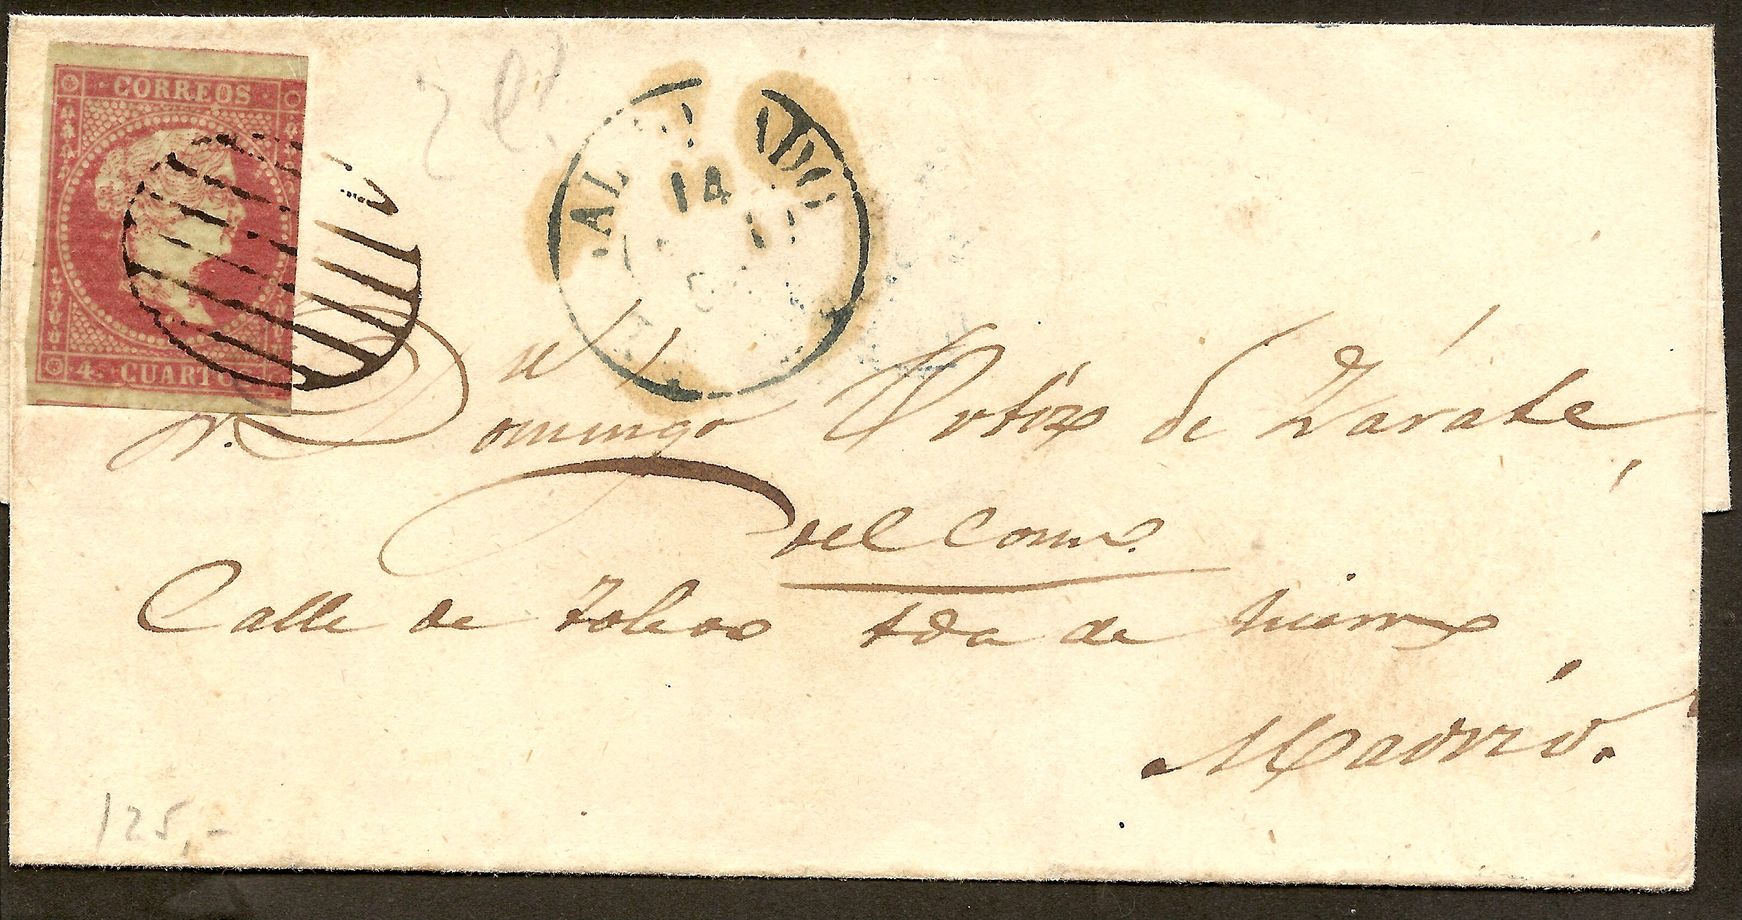 CORREOS
4. CUARTO
14
Sr. Dn Domingo Ortiz de Zárate
del Como.
Calle de Toledo tda de
Madrid.
125,-